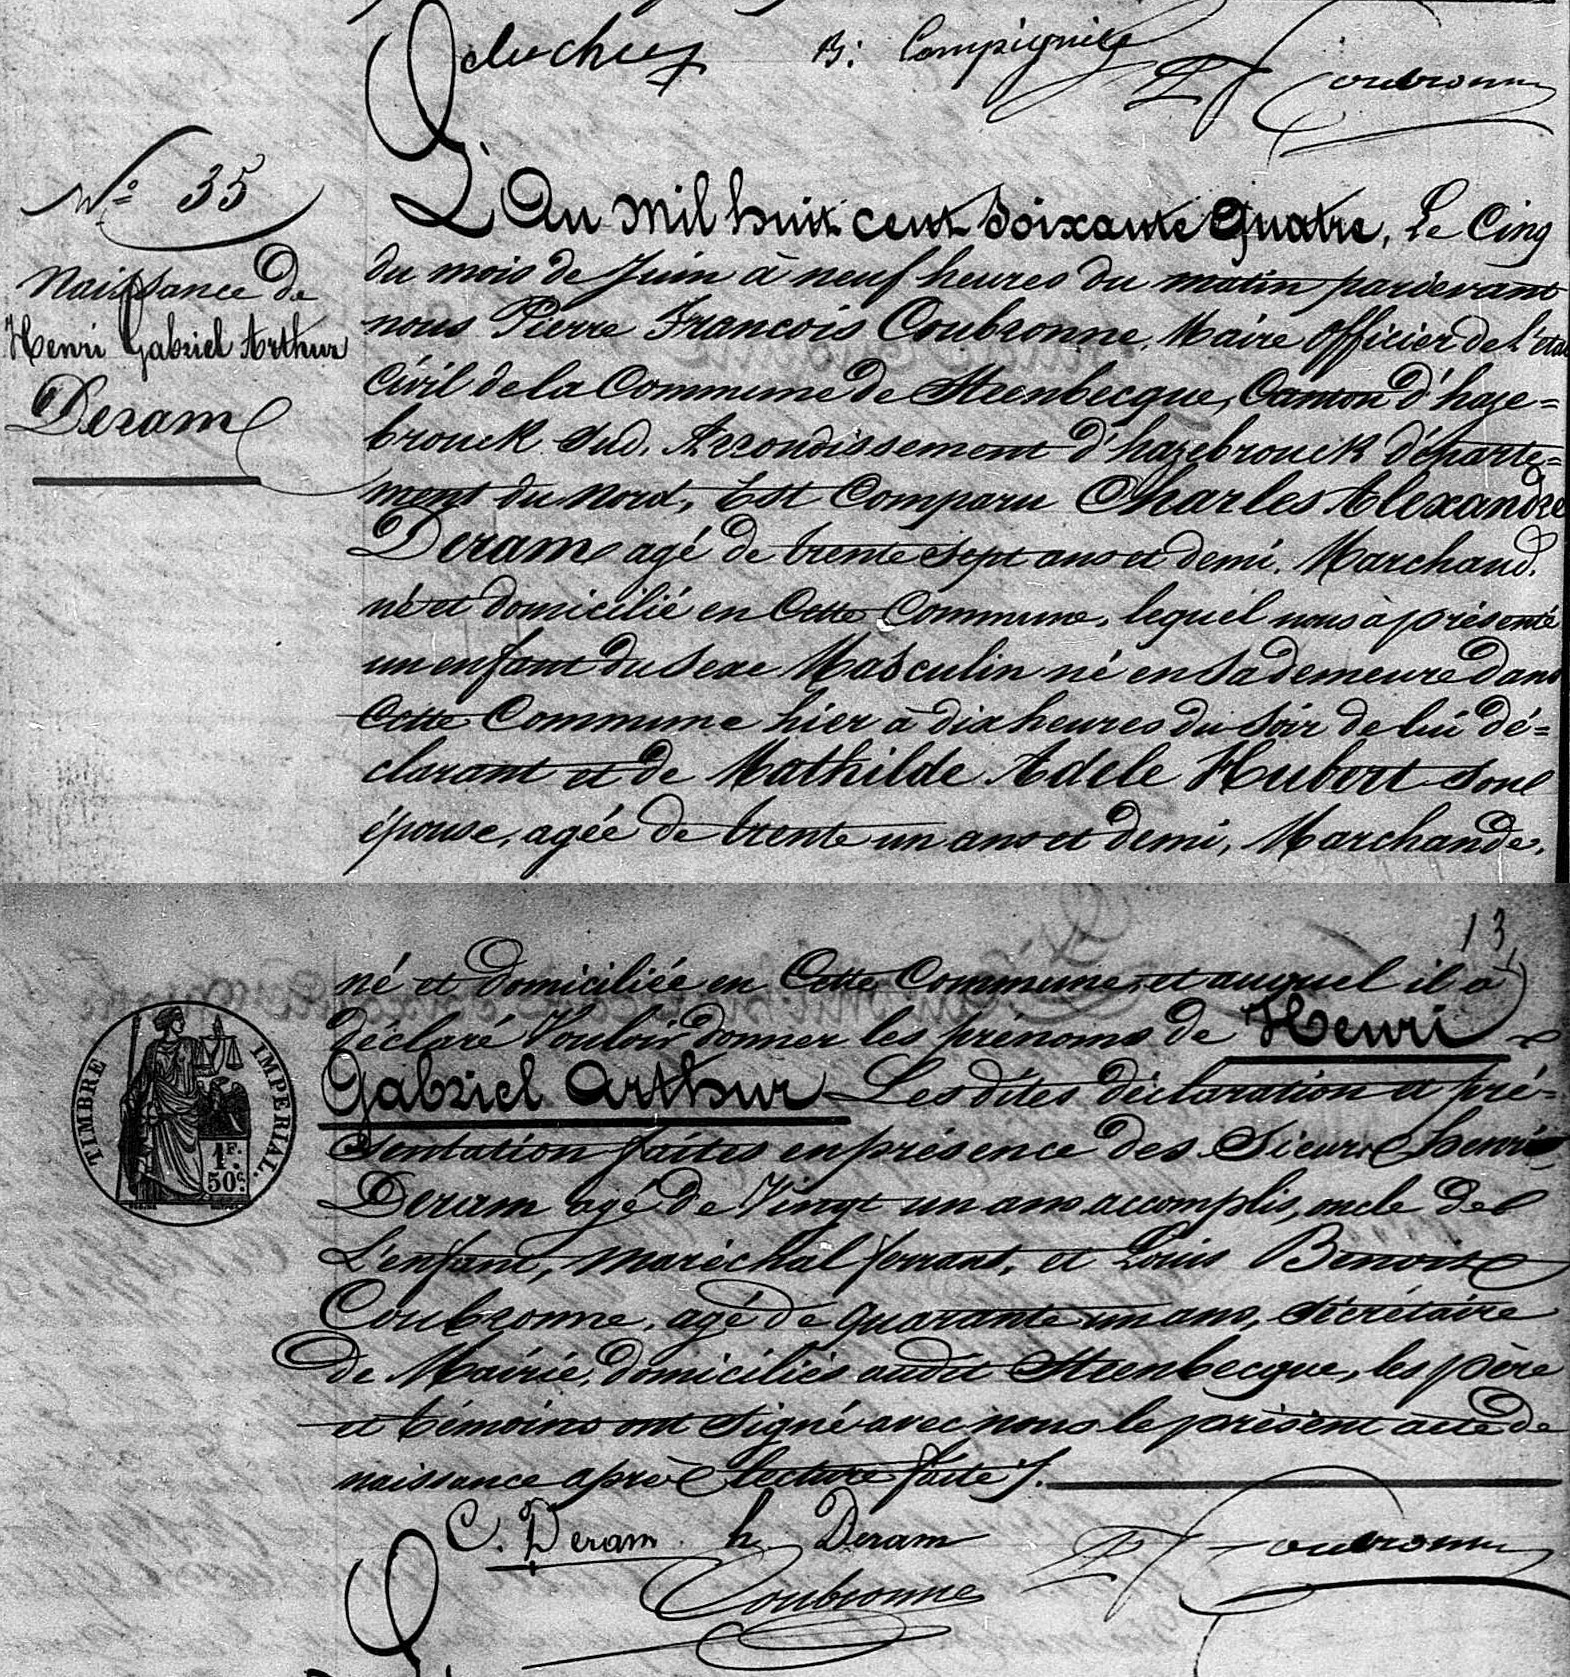 B: Compignie
P F Coubronne
N° 35
Naissance de
Henri Gabriel Arthur
Deram
L'An mil huit cent soixante quatre, Le Cinq
du mois de Juin à neuf heures du matin pardevant
nous Pierre François Coubronne, Maire officier de l'état
Civil de la Commune de Steenbecque, Canton d'haze=
brouck sud, Arrondissement d'hazebrouck départe=
ment du Nord, Est Comparu Charles Alexandre
Deram agé de trente sept ans et demi, Marchand,
né et domicilié en Cette Commune, lequel nous à présenté
un enfant du sexe Masculin né en sa demeure dans
Cette Commune hier à dix heures du soir de lui dé=
clarant et de Mathilde Adele Hubert son
épouse, agée de trente un ans et demi, Marchande,
13
né et domiciliée en Cette Commune, et auquel il à
déclaré Vouloir donner les prénoms de Henri
Gabriel Arthur Les dites déclaration et pré=
sentation faites en présence des Sieurs henri
Deram agé de Vingt un ans accomplis, oncle de
L'enfant, maréchal ferrant, et Louis Benoit
Coubronne, agé de quarante un ans, Sécrétaire
de Mairie, domiciliés audit Steenbecque, les père
et témoins ont signé avec nous le présent acte de
naissance après lecture faite /.
C. Deram h Deram
P F Coubronne
Coubronne
TIMBRE IMPERIAL.
1F.
50c.